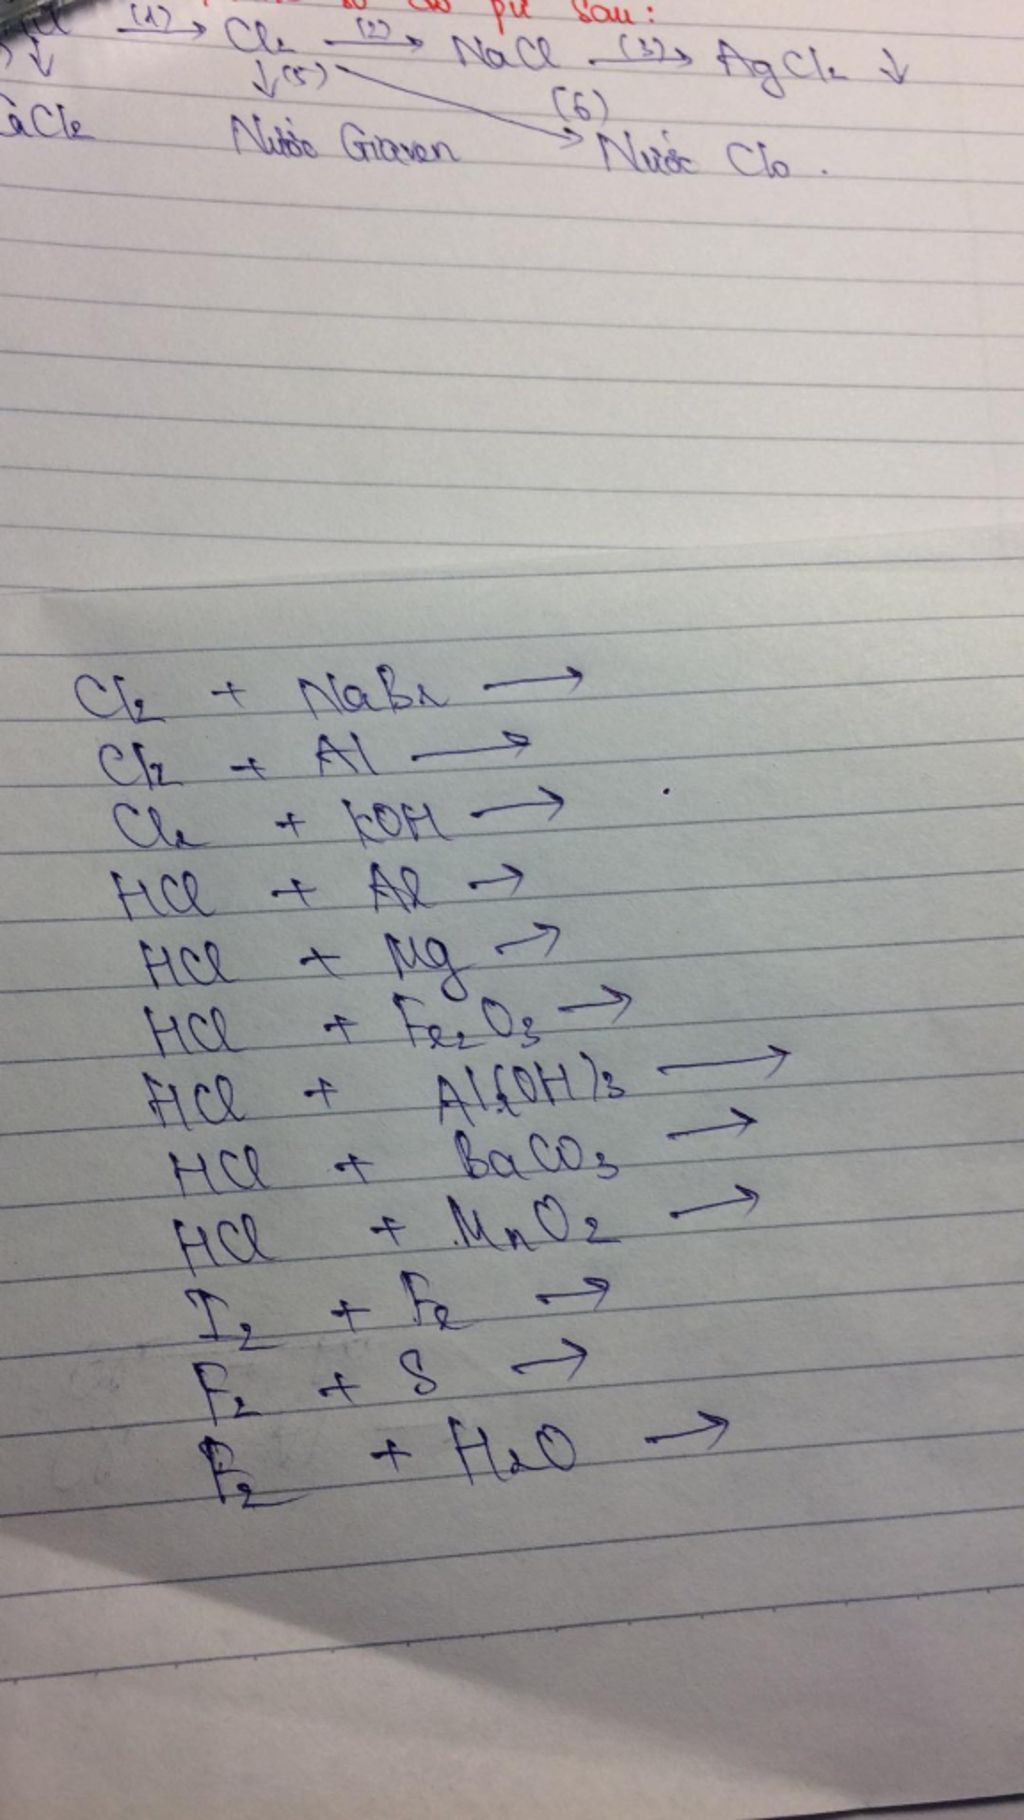 sơ đồ pư sau:
(1) → Cl2 (2) → NaCl (3) → AgCl2 ↓
↓ ↓(5) (6)
aCl2 Nước Giaven → Nước Clo .
Cl2 + NaBr →
Cl2 + Al →
Cl2 + KOH →
HCl + Al →
HCl + Mg →
HCl + Fe2O3 →
HCl + Al(OH)3 →
HCl + BaCO3 →
HCl + MnO2 →
I2 + Fe →
F2 + S →
F2 + H2O →